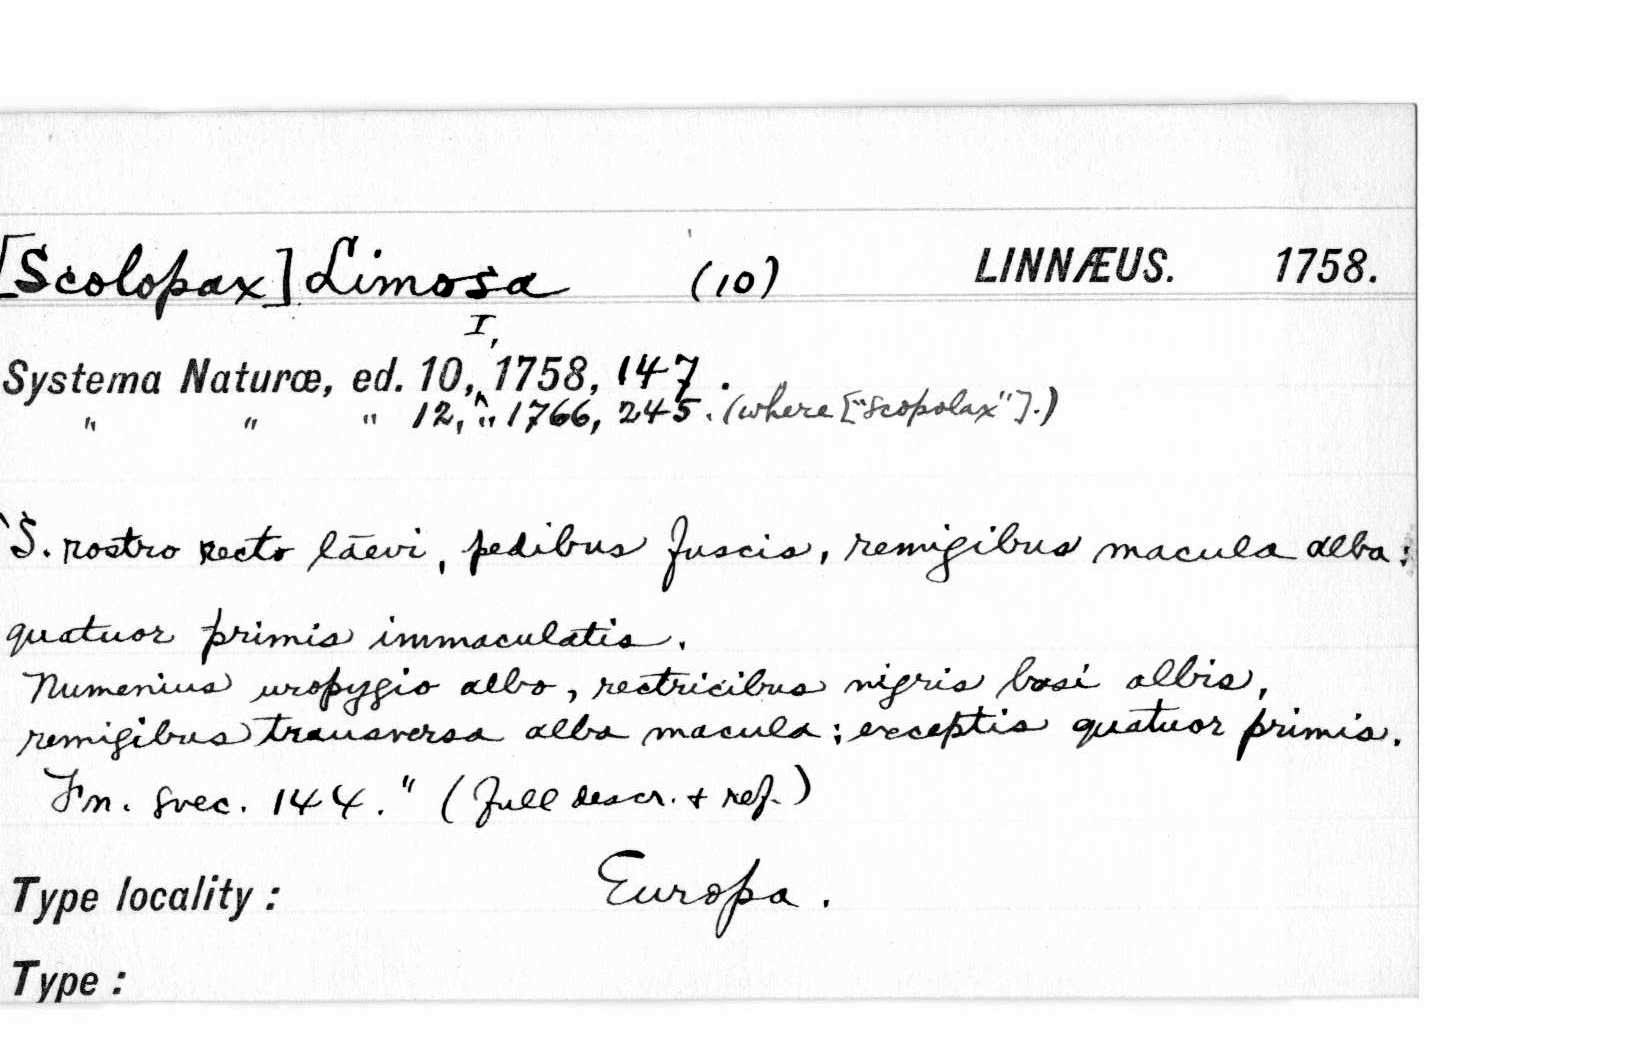 [Scolopax] Limosa (10) LINNÆUS. 1758.
I,
Systema Naturæ, ed. 10,^ 1758, 147.
" " " 12, " 1766, 245. (where ["Scopolax"].)
"S. rostro recto lāevi, pedibus fuscis, remigibus macula alba:
quatuor primis immaculatis.
Numenius uropygio albo, rectricibus nigris basi albis,
remigibus transversa alba macula; exceptis quatuor primis.
Fn. svec. 144." (full descr. & ref.)
Type locality: Europa.
Type: